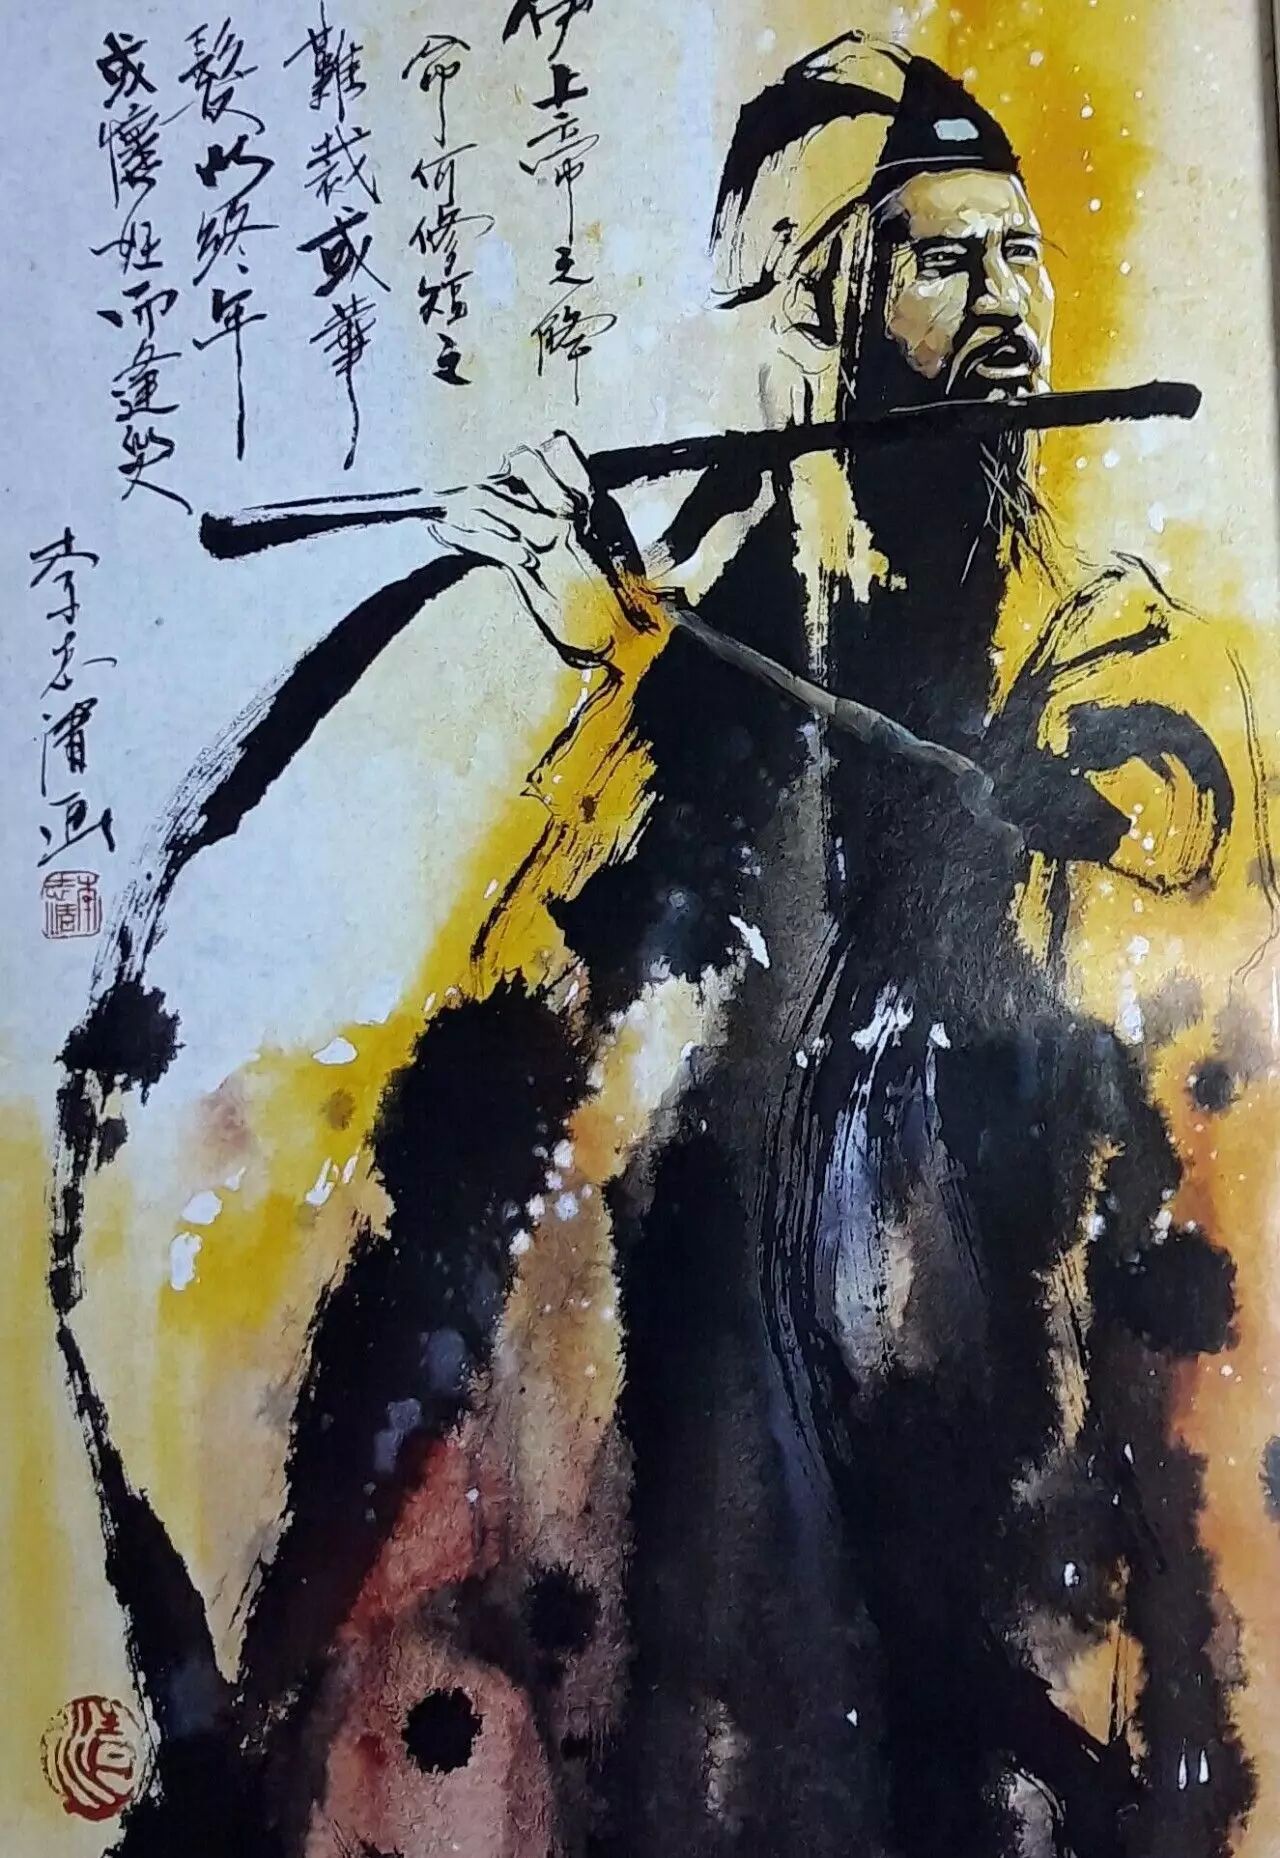 伊上帝之降
命何修短之
難裁或華
髮以終年
或懷妊而逢災
李志清画
李志清